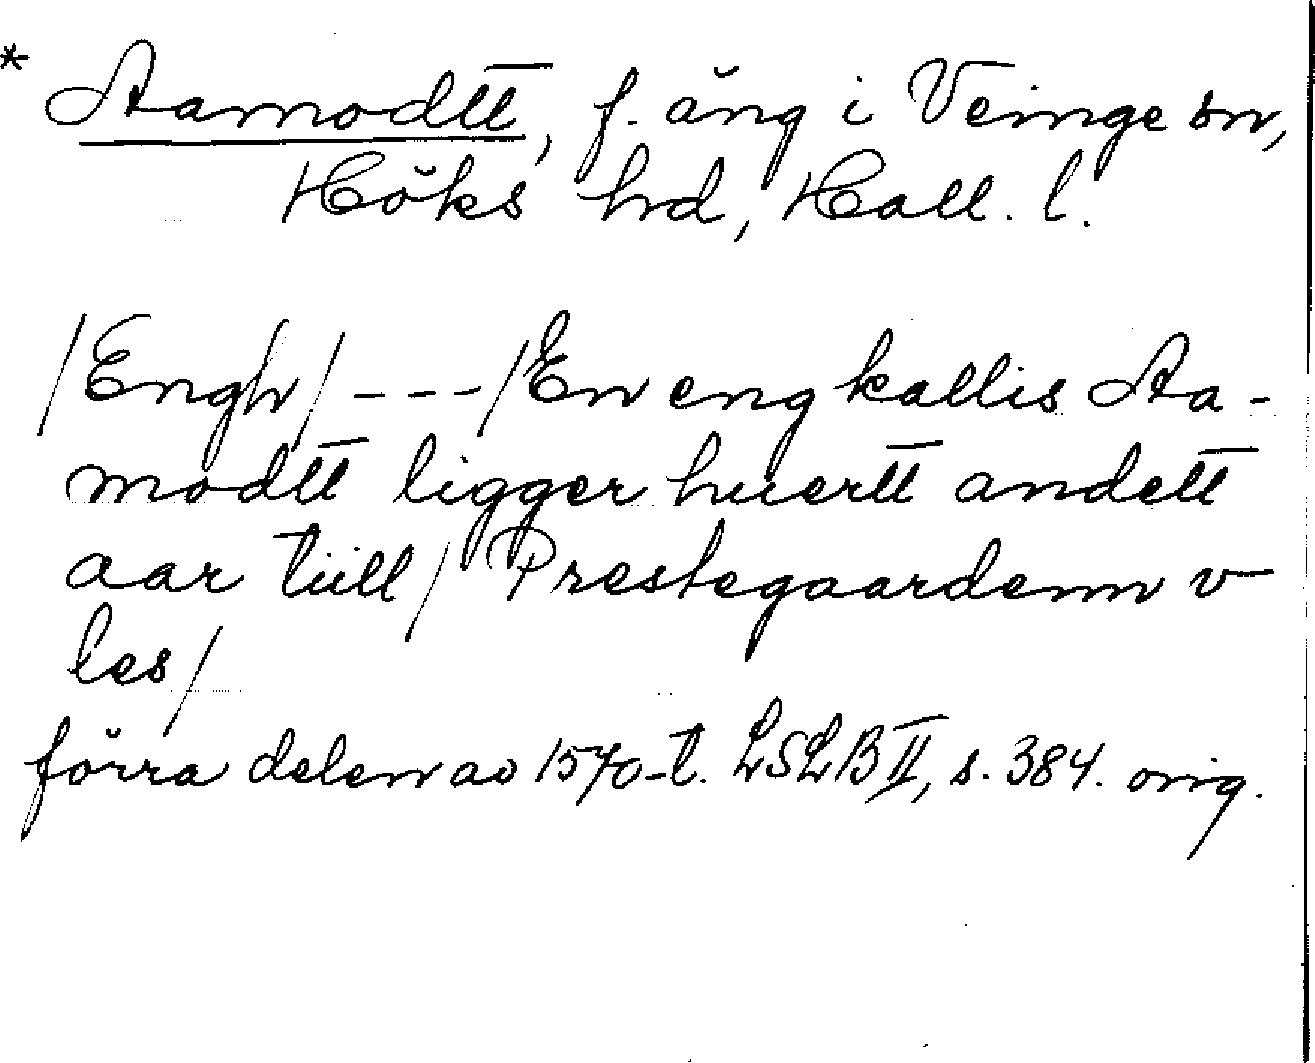 * Aamodtt, f. äng i Veinge sn,
Höks hrd, Hall. l.
/Engh/ - - - /En eng kallis Aa-
modtt ligger huertt andett
aar tiill/ Prestegaardenn v
les/
förra delen av 1570-t. LSLB II, s. 384. orig.